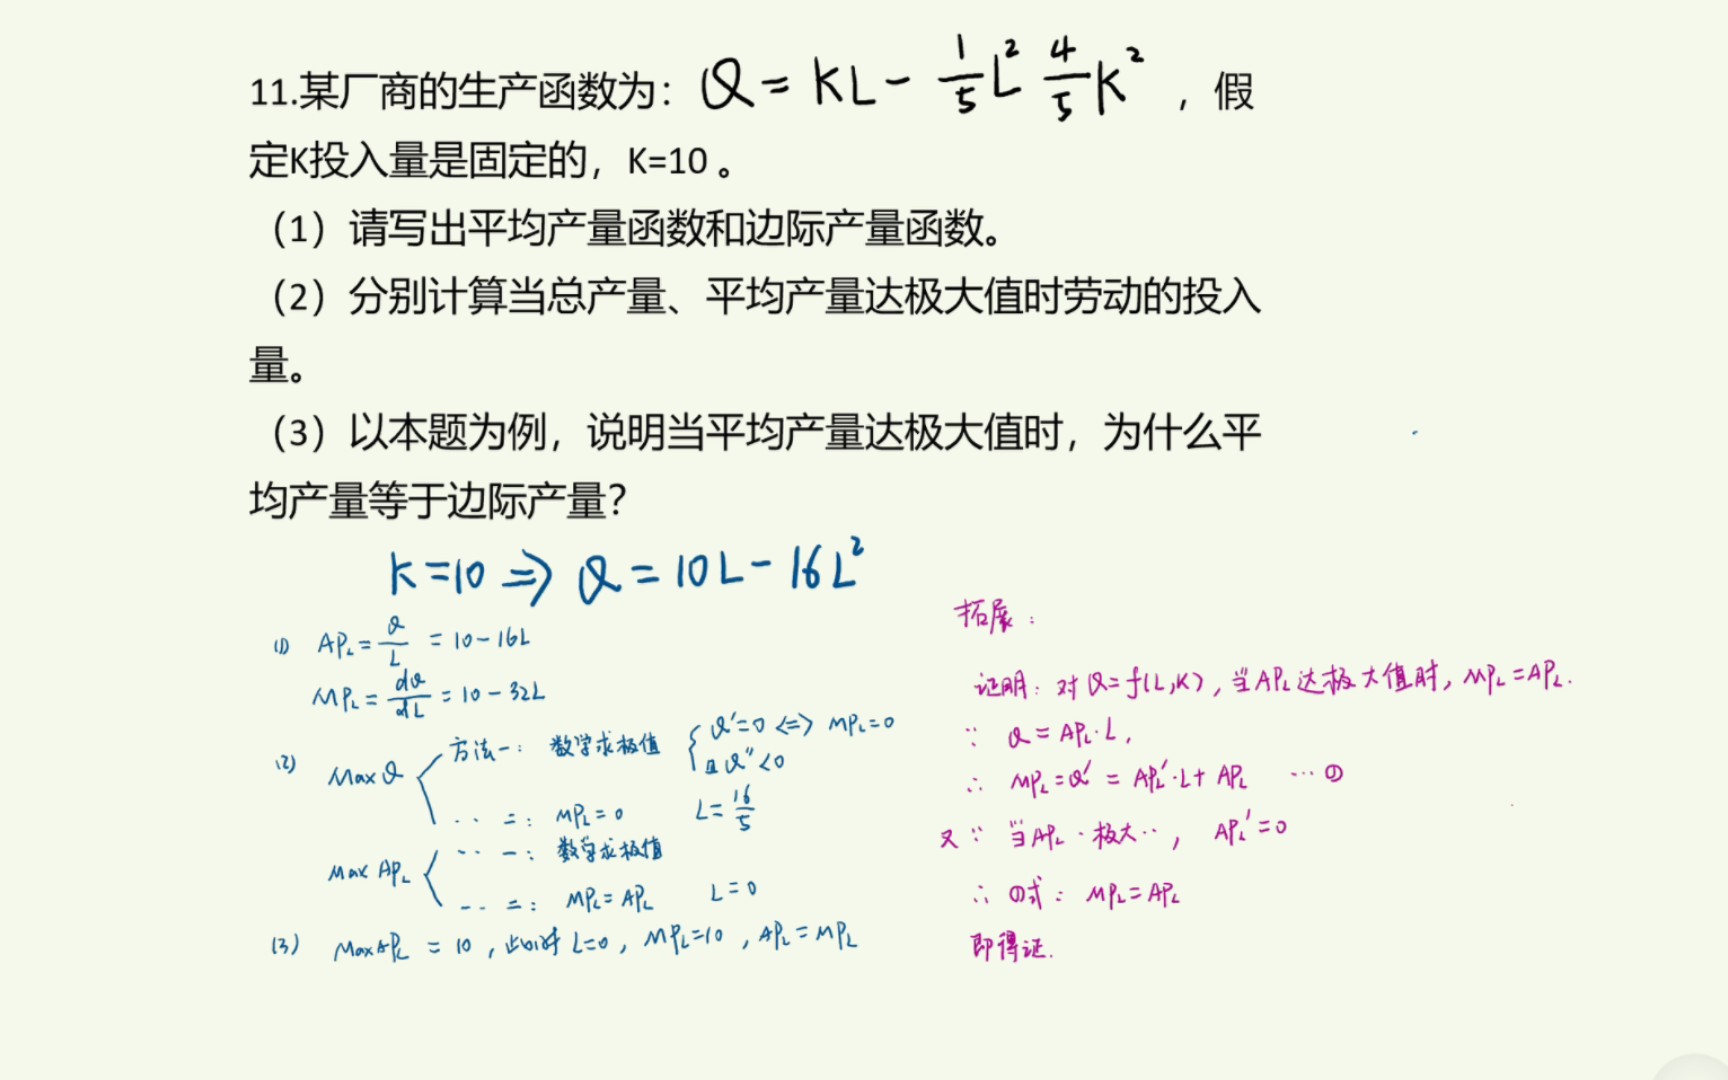 11.某厂商的生产函数为：Q = KL - 1/5 L² 4/5 K² ，假
定K投入量是固定的，K=10 。
（1）请写出平均产量函数和边际产量函数。
（2）分别计算当总产量、平均产量达极大值时劳动的投入
量。
（3）以本题为例，说明当平均产量达极大值时，为什么平
均产量等于边际产量？
K=10 ⇒ Q = 10L - 16L²
(1) AP_L = Q/L = 10-16L
MP_L = dQ/dL = 10-32L
(2) Max Q
方法一： 数学求极值 { Q'=0 ⇔ MP_L=0
且 Q''<0
.. 二： MP_L=0 L=16/5
Max AP_L
.. 一： 数学求极值
.. 二： MP_L=AP_L L=0
(3) Max AP_L = 10 , 此时 L=0 , MP_L=10 , AP_L=MP_L
拓展：
证明：对 Q=f(L,K) , 当AP_L达极大值时, MP_L=AP_L.
∵ Q = AP_L·L ,
∴ MP_L=Q' = AP_L'·L+AP_L …①
又∵ 当AP_L·极大·· , AP_L'=0
∴ ①式： MP_L=AP_L
即得证.